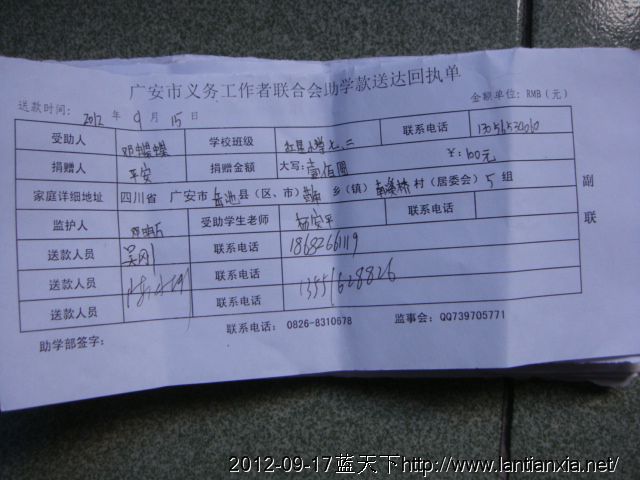 广安市义务工作者联合会助学款送达回执单
送款时间: 2012 年 9 月 15 日 金额单位: RMB(元)
受助人 邓蝶蝶 学校班级 红星小学 七.二 联系电话
捐赠人 平安 捐赠金额 大写: 壹佰圆 ¥: 100元
家庭详细地址 四川省 广安市 岳池 县(区、市) 乡(镇) 村(居委会) 5 组
监护人 受助学生老师 杨安平 联系电话
送款人员 吴刚 联系电话 1868266119
送款人员 联系电话 13551628826
送款人员 联系电话
副联
助学部签字: 联系电话: 0826-8310678 监事会: QQ739705771
2012-09-17蓝天下http://www.lantianxia.net/